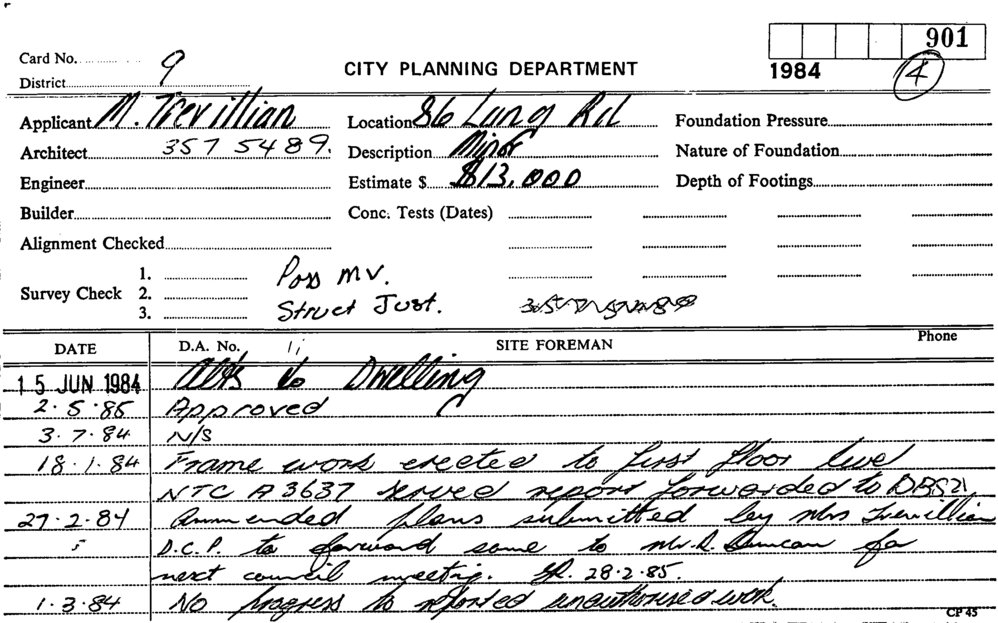 901
1984 4
Card No. 9
District
CITY PLANNING DEPARTMENT
Applicant M. Trevillian Location 86 Lang Rd Foundation Pressure
Architect 357 5489. Description Minor Nature of Foundation
Engineer Estimate $ $13,000 Depth of Footings
Builder Conc. Tests (Dates)
Alignment Checked
Survey Check 1. 2. 3.
Poss MV.
Struct Just.
DATE D.A. No. SITE FOREMAN Phone
15 JUN 1984 Alts to Dwelling
2.5.85 Approved
3.7.84 N/S
18.1.84 Frame work erected to first floor level
NTC A 3637 served report forwarded to DBS
27.2.84 Ammended plans submitted by Mrs Trevillian
D.C.P. to forward same to Mr. R. Duncan for
next council meeting. 28.2.85.
1.3.84 No progress to reported unauthorised work.
CP 45